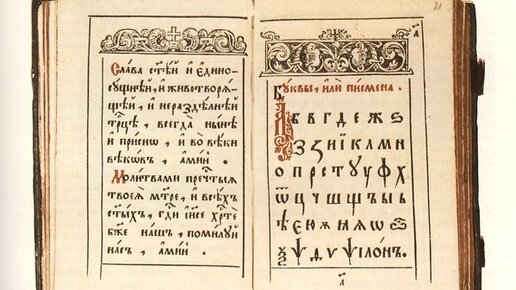 Сла́ва ст҃ѣ́й и҆ є҆дино-
су́щнѣй, и҆ животворѧ́-
щѣй, и҆ нераздѣ́лнѣй
трⷪ҇цѣ, всегда̀ ны́нѣ
и҆ при́снѡ, и҆ во вѣ́ки
вѣкѡ́въ, а҆ми́нь.
Моли́твами пречⷭ҇тыѧ
твоеѧ̀ мт҃ре, и҆ всѣ́хъ
ст҃ы́хъ, гдⷭ҇и і҆и҃се хрⷭ҇тѐ
бж҃е на́шъ, поми́лꙋй
на́съ, а҆ми́нь.
Бꙋ́квы, и҆лѝ пи́смена.
А Б В Г Д Е Ж Ѕ
З Ꙁ И Ї К Л М Н
О П Р С Т Ꙋ У Ф Х
Ѿ Ц Ч Ш Щ Ъ Ы Ь
Ѣ Є Ю Ѧ Ѡ
Ѯ Ѱ Ѵ ѰІЛО́НЪ.